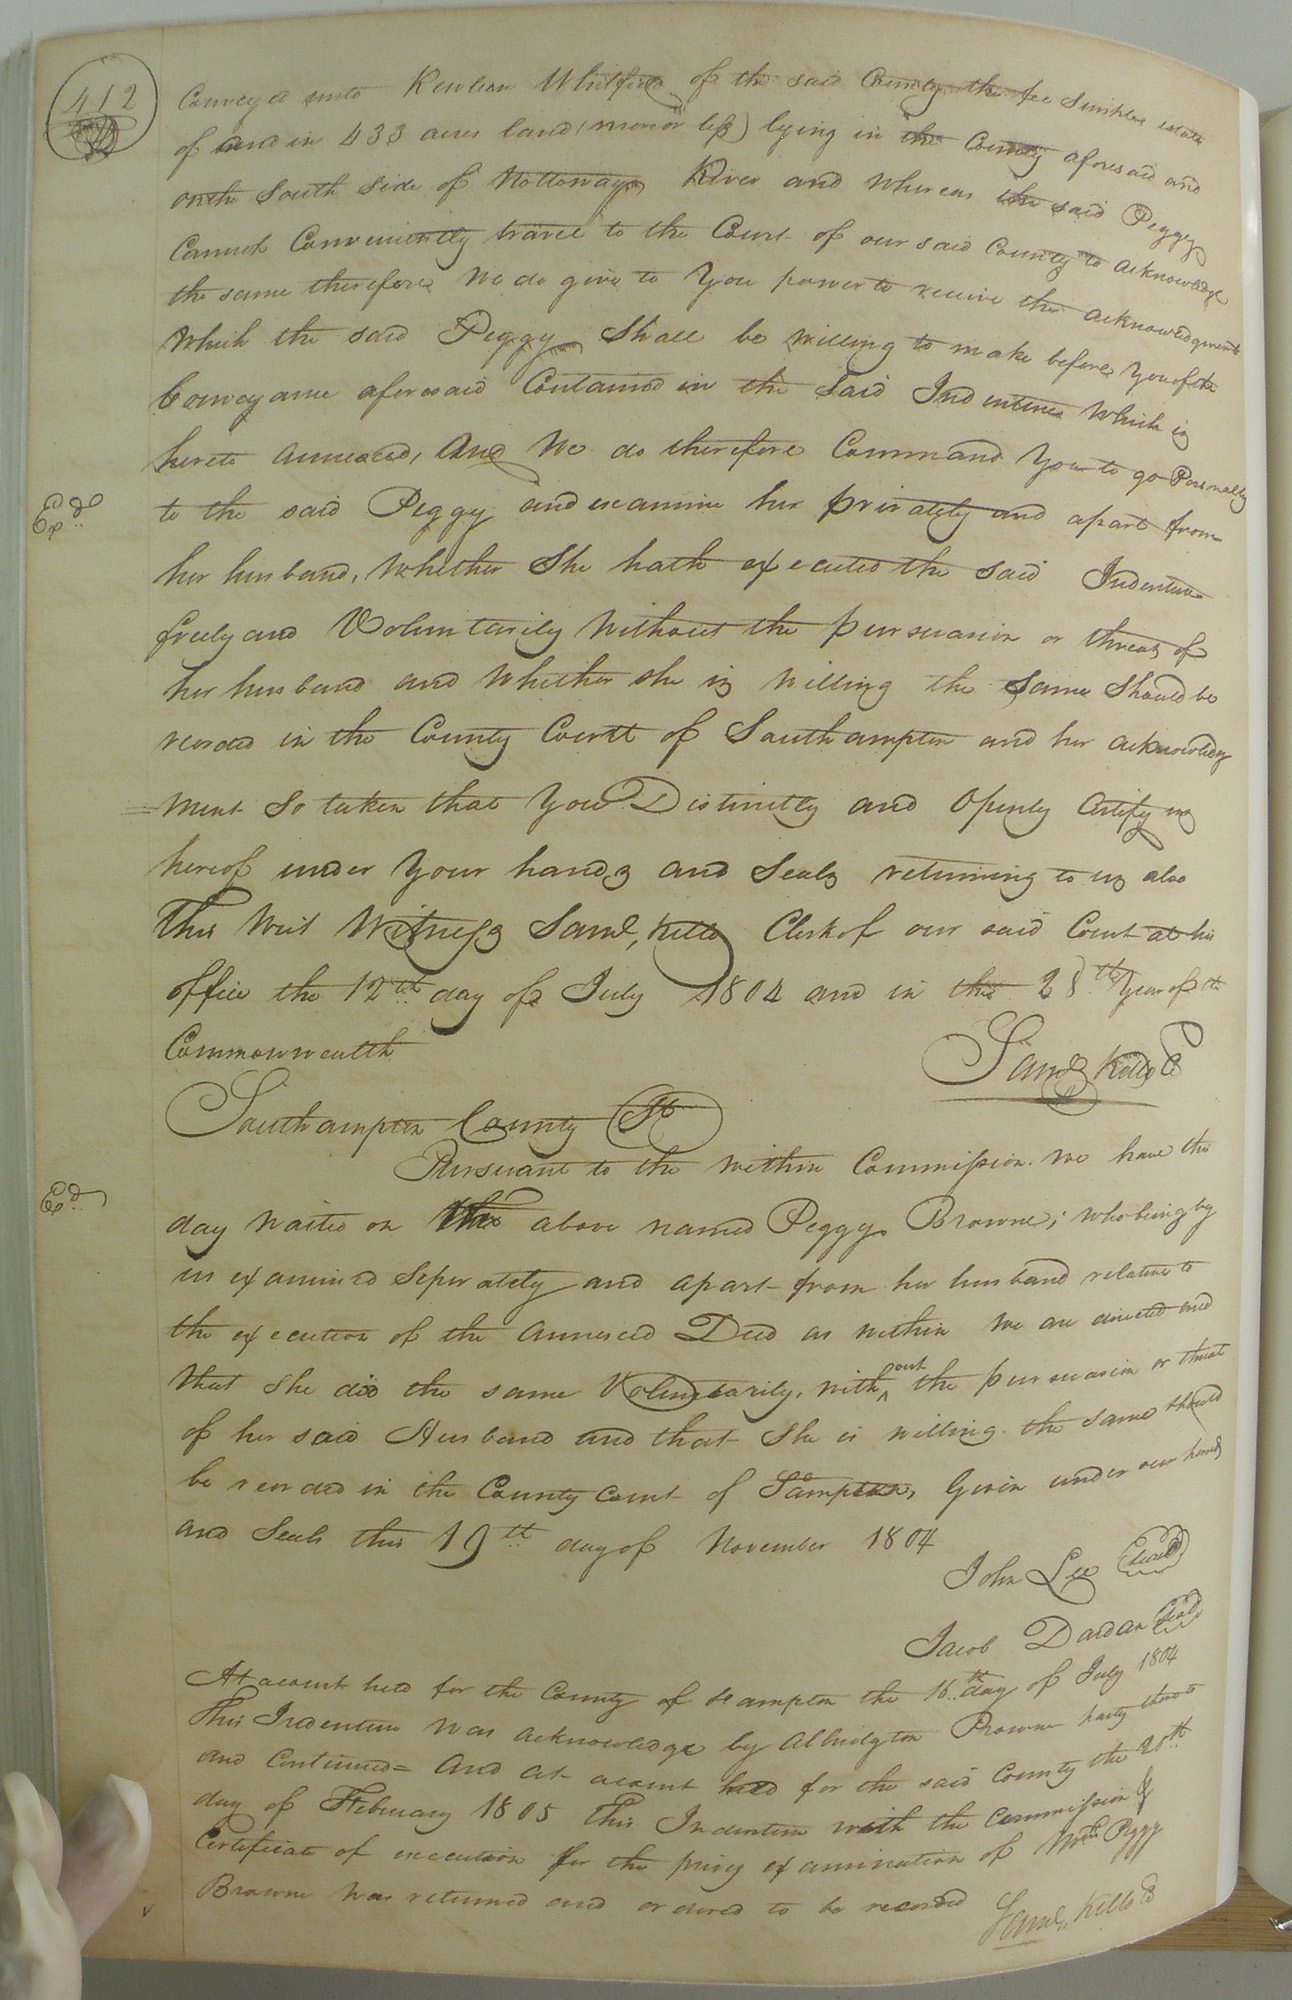 412
Conveyed unto Kewlean Whitfield of the said County the fee Simple estate
of and in 433 acres land (more or less) lying in the County aforesaid and
on the South Side of Nottoway River and Whereas the said Peggy
Cannot Conveniently travel to the Court of our said County to acknowledge
the same therefore We do give to You power to receive the acknowledgment
Which the said Peggy Shall be willing to make before You of the
Conveyance aforesaid Contained in the Said Indenture Which is
hereto annexed, And We do therefore Command You to go Personally
to the said Peggy and examine her privately and apart from
Exd
her husband, Whether She hath executed the said Indenture
freely and Voluntarily Without the pursuasion or threats of
her husband and Whether she is Willing the Same Should be
recorded in the County Court of Southampton and her acknowledg
=ment So taken that You Distinctly and Openly Certify us
hereof under Your hands and Seals returning to us also
This Writ Witness Saml, Kello Clerk of our said Court at his
office the 12th day of July 1804 and in the 28th Year of th
Commonwealth
Saml Kello C
Southampton County St
Pursuant to the within Commission. We have this
day Waited on the above named Peggy Browne; who being by
Exd
us examined Seperately and apart from her husband relative to
the execution of the annexed Deed as within We are directed and
that she did the same Voluntarily, with^out the pursuasion or threat
of her said Husband and that She is willing the Same should
be recorded in the County Court of Sampton, Given under our hands
and Seals this 19th day of November 1804
John Lee Seal
Jacob Dardan Seal
At a court held for the County of Sampton the 16th day of July 1804
This Indenture Was acknowledge by Albridgton Browne party thereto
and Continued= And at a court held for the said County the 20th
day of February 1805 This Indenture with the Commission &
Certificate of execution for the privy examination of Mrs Peggy
Browne Was returned and ordered to be recorded
Saml, Kello C